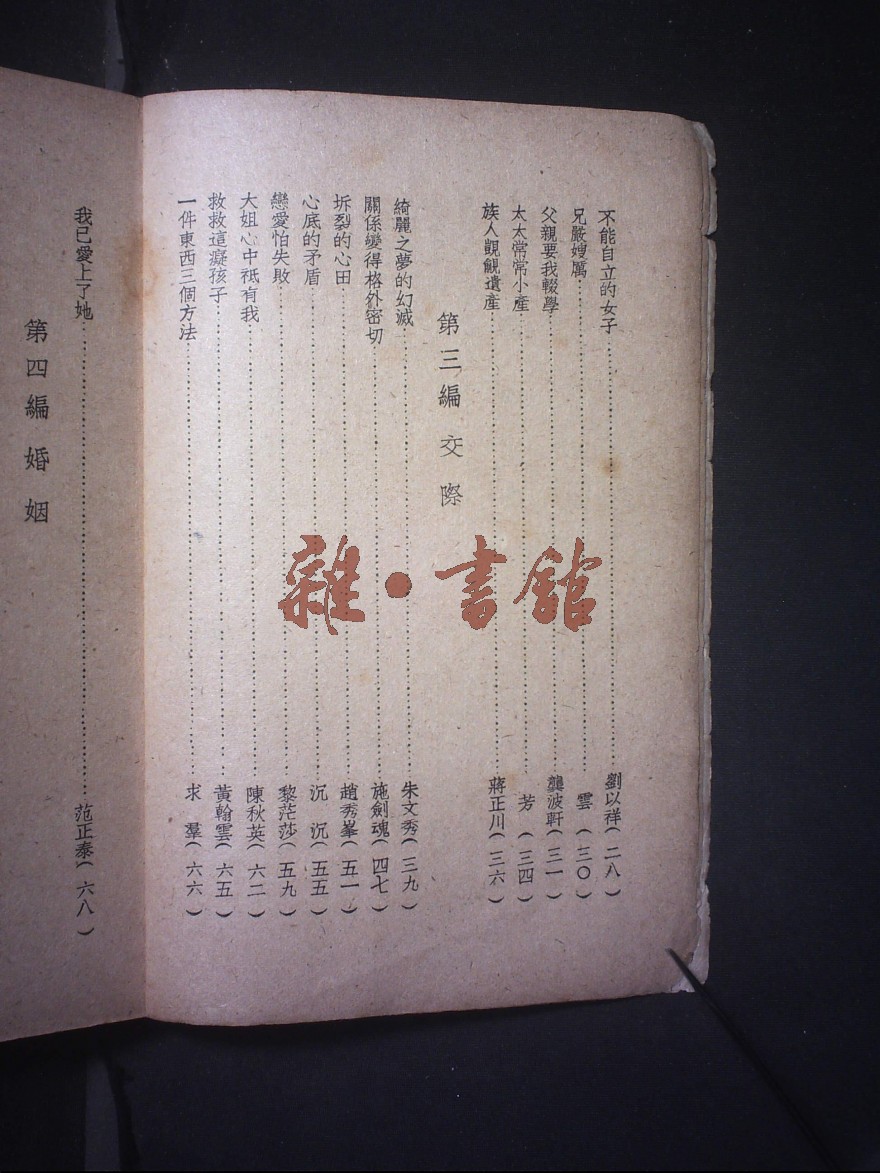 不能自立的女子……劉以祥(二八)
兄嚴嫂厲……雲(三〇)
父親要我輟學……龔波軒(三一)
太太常常小產……芳(三四)
族人覬覦遺產……蔣正川(三六)
第三編 交際
綺麗之夢的幻滅……朱文秀(三九)
關係變得格外密切……施劍魂(四七)
坼裂的心田……趙秀峯(五一)
心底的矛盾……沉沉(五五)
戀愛怕失敗……黎茫莎(五九)
大姐心中祇有我……陳秋英(六二)
救救這癡孩子……黃翰雲(六五)
一件東西三個方法……求羣(六六)
我已愛上了她……范正泰(六八)
第四編 婚姻
雜·書館